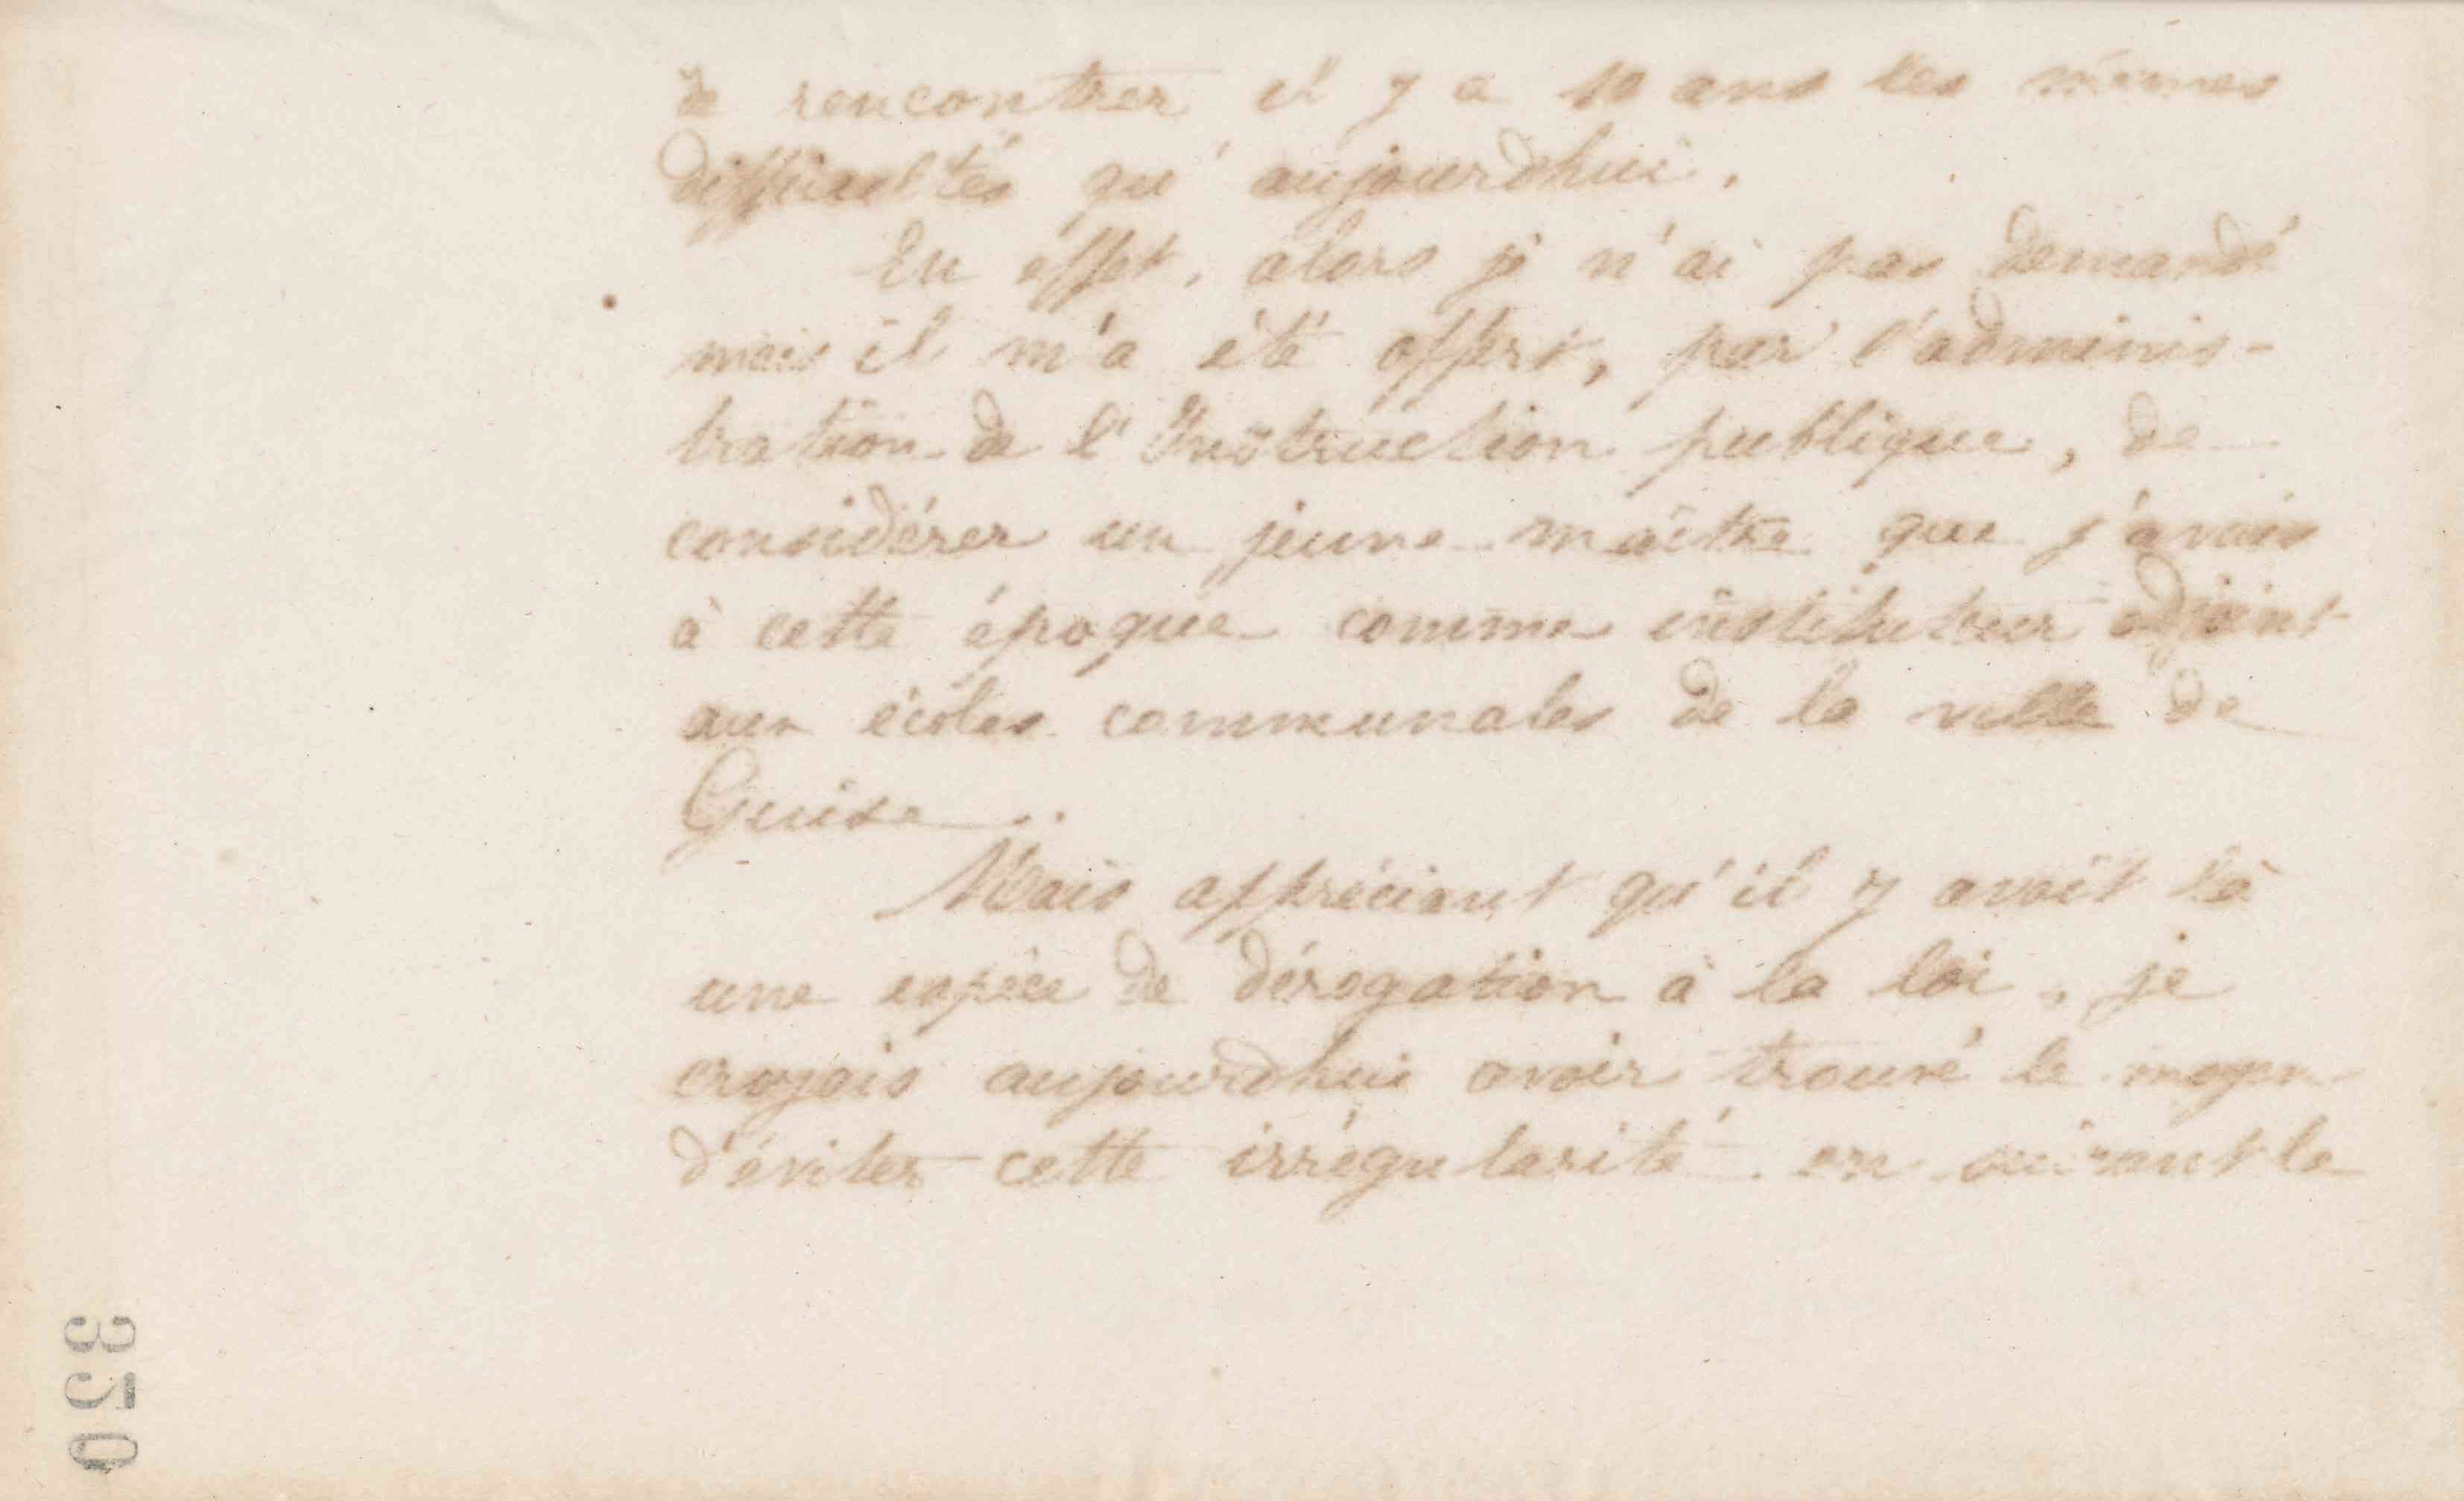 de rencontrer il y a 10 ans les mêmes
difficultés qu'aujourdhui.
En effet, alors je n'ai pas demandé
mais il m'a été offert, par l'adminis-
tration de l'Instruction publique, de
considérer un jeune maître que j'avais
à cette époque comme instituteur adjoint
aux écoles communales de la ville de
Guise.
Mais appréciant qu'il y avait là
une espèce de dérogation à la loi, je
croyais aujourdhui avoir trouvé le moyen
d'éviter cette irrégularité en suivant la
350